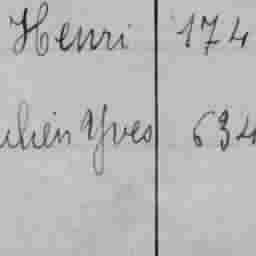 Henri 174
ulien Yves 634